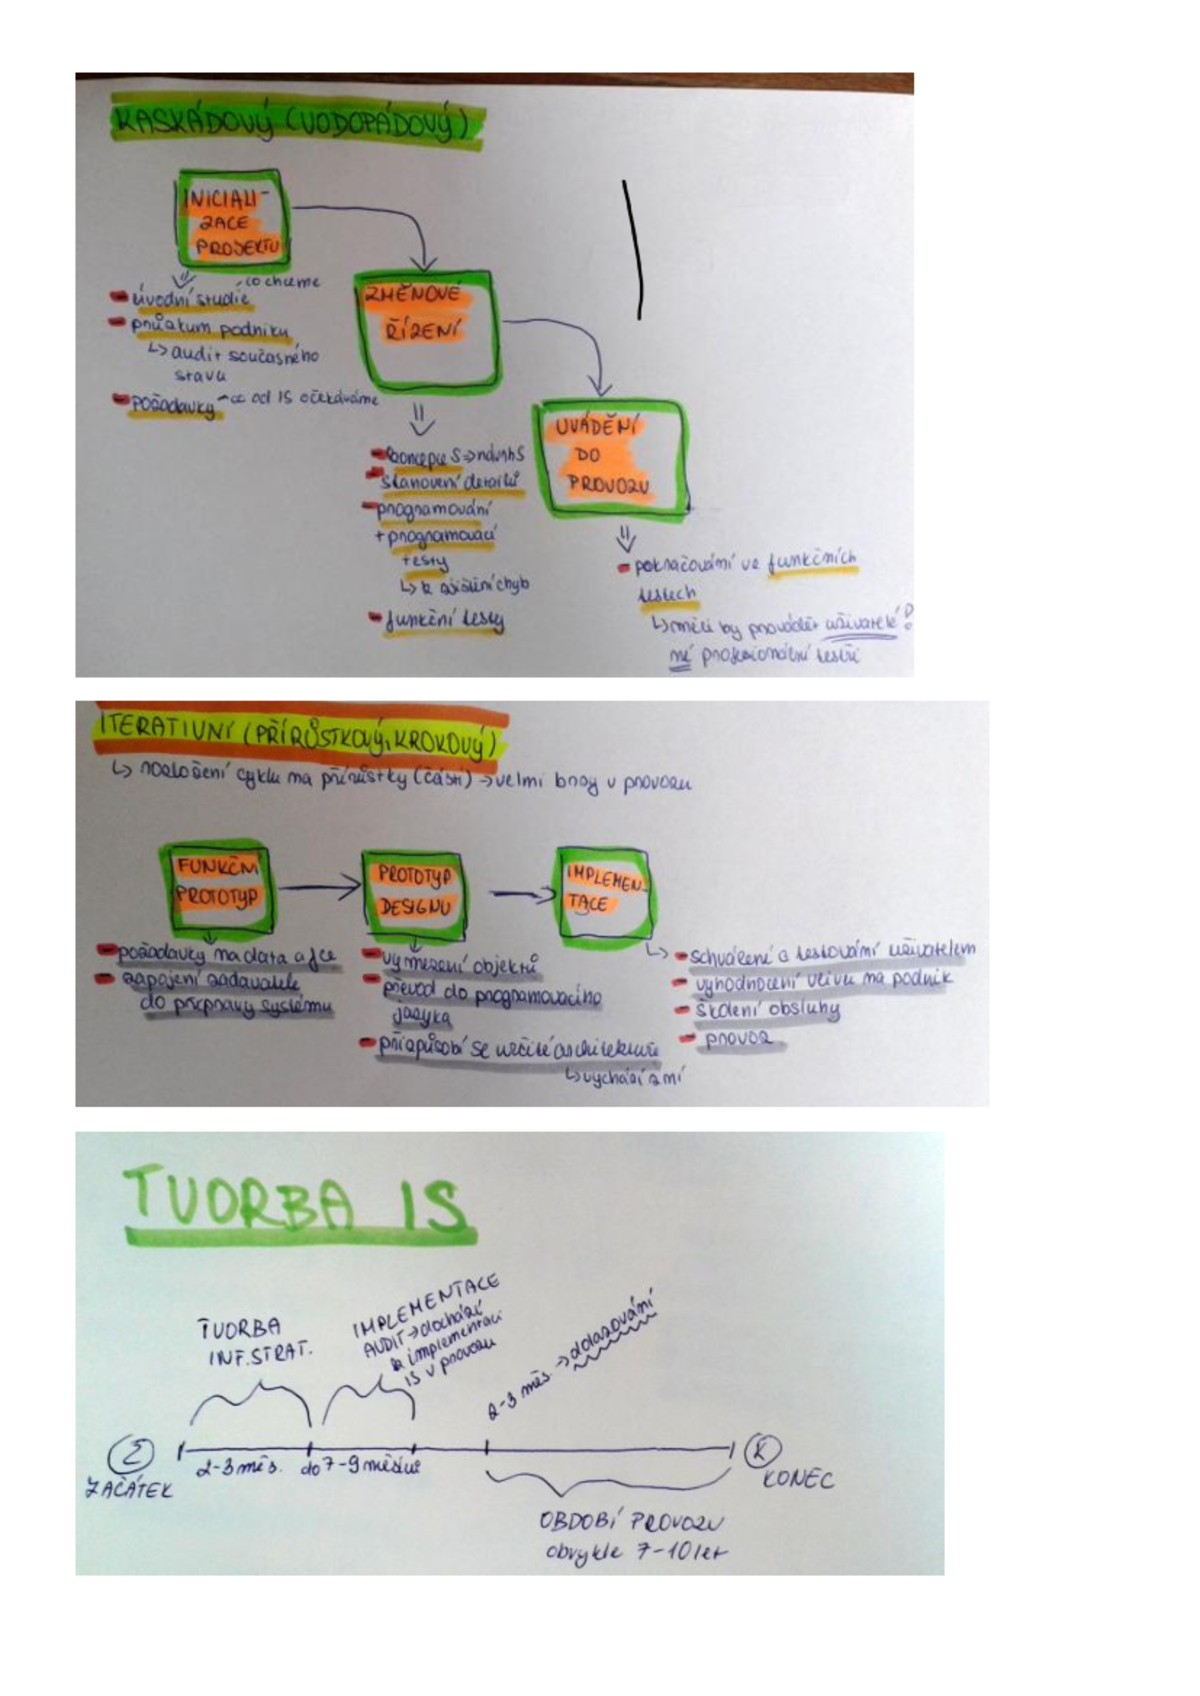 KASKÁDOVÝ (VODOPÁDOVÝ)
INICIALI-
ZACE
PROJEKTU
co chceme
- úvodní studie
- průzkum podniku
↳ audit současného
stavu
- požadavky - co od IS očekáváme
ZMĚNOVÉ
ŘÍZENÍ
- koncepce S => návrh S
- stanovení detailů
- programování
+ programovací
testy
↳ k zjištění chyb
- funkční testy
UVÁDĚNÍ
DO
PROVOZU
- pokračování ve funkčních
testech
↳ měli by provádět uživatelé!
né profesionální testři
ITERATIVNÍ (PŘÍRŮSTKOVÝ, KROKOVÝ)
↳ rozložení cyklu na přírůstky (části) → velmi brzy v provozu
FUNKČNÍ
PROTOTYP
- požadavky na data a fce
- zapojení zadavatele
do přípravy systému
PROTOTYP
DESIGNU
- vymezení objektů
- převod do programovacího
jazyka
- přizpůsobí se určité architektuře
↳ vychází z ní
IMPLEMEN-
TACE
↳ - schválení a testování uživatelem
- vyhodnocení vlivu na podnik
- školení obsluhy
- provoz
TVORBA IS
TVORBA
INF. STRAT.
IMPLEMENTACE
AUDIT → dochází
k implementaci
IS v provozu
2-3 měs. → dolaďování
Z
ZAČÁTEK
2-3 měs.
do 7-9 měsíců
K
KONEC
OBDOBÍ PROVOZU
obvykle 7-10 let